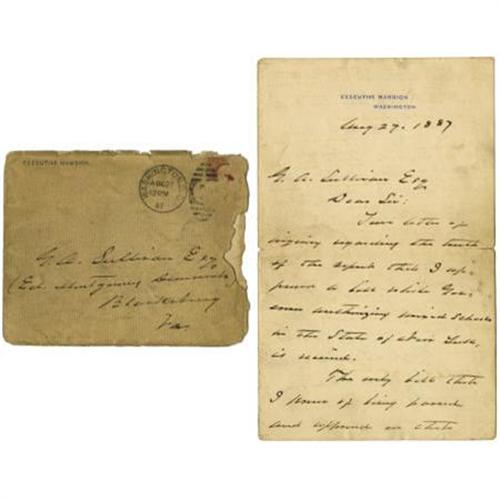 EXECUTIVE MANSION.
WASHINGTON, D.C.
AUG 27
12 PM
87
G. A. Sullivan Esq
(Ed. Montgomery
Va
EXECUTIVE MANSION
WASHINGTON.
Aug 27. 1887
G. A. Sullivan Esq
Dear Sir:
Your letter of
inquiry regarding the truth
of the report that I ap-
proved a bill while Gov-
ernor authorizing mixed schools
in the State of New York,
is received.
The only bill that
I know of being passed
and approved on that